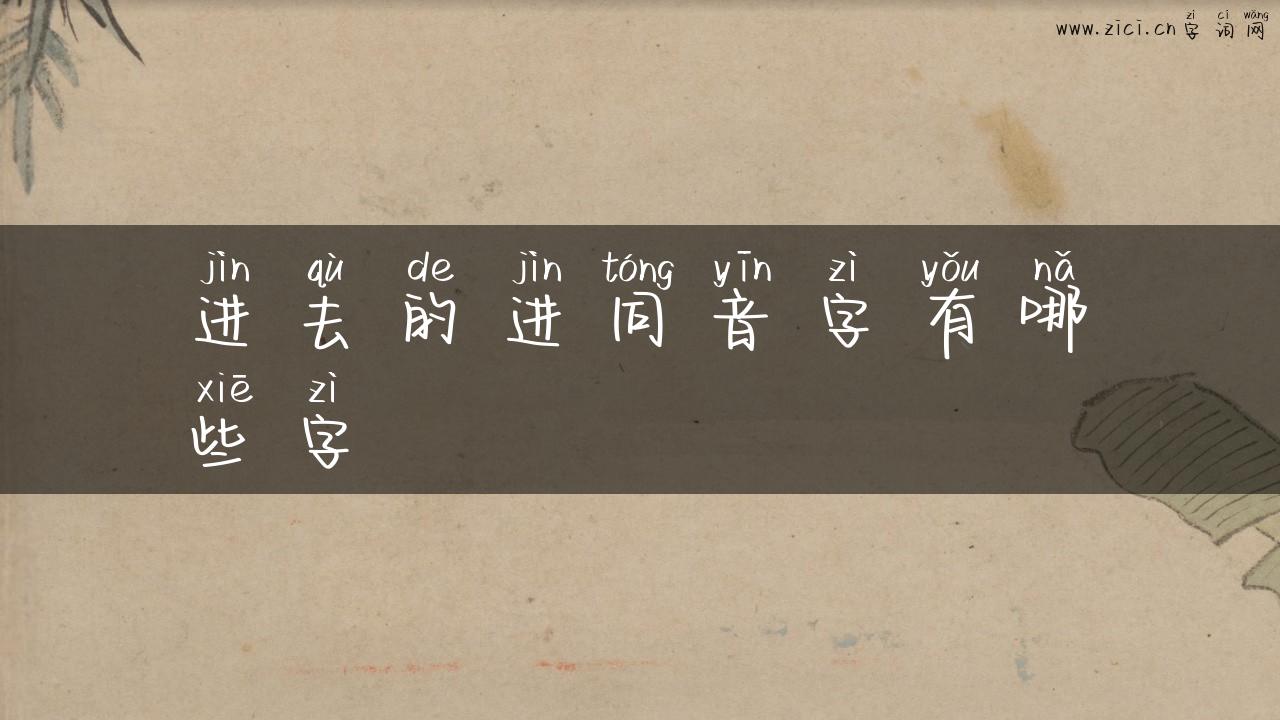 zì cí wǎng
www.zici.cn 字 词 网
jìn qù de jìn tóng yīn zì yǒu nǎ
进 去 的 进 同 音 字 有 哪
xiē zì
些 字